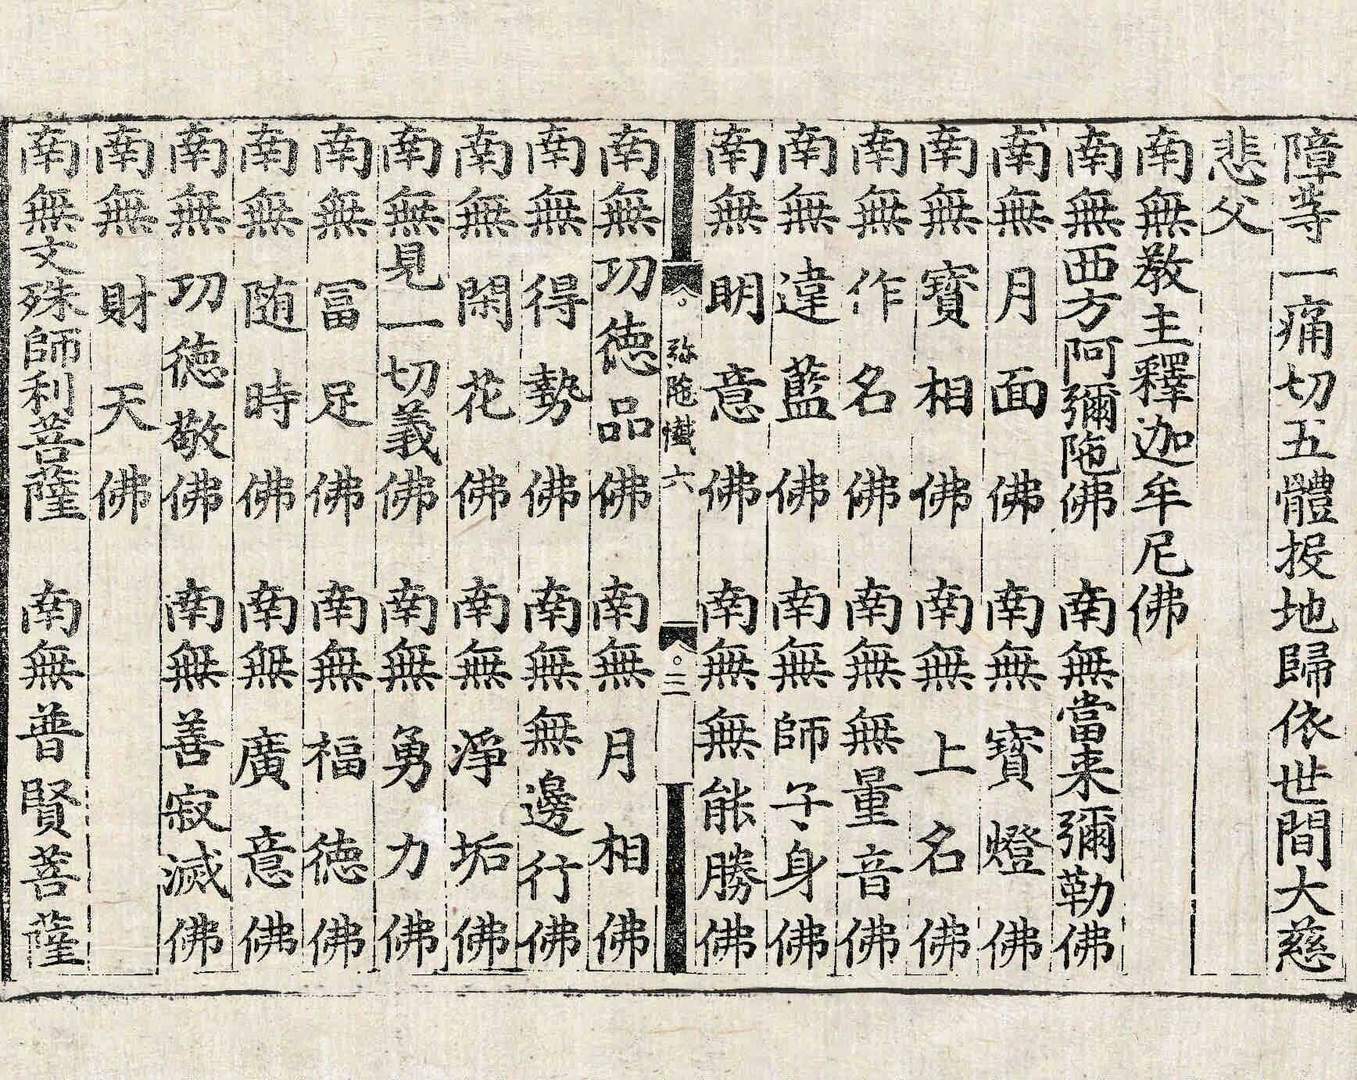 障等一痛切五體投地歸依世間大慈
悲父
南無教主釋迦牟尼佛
南無西方阿彌陁佛　南無當来彌勒佛
南無月面佛　南無寳燈佛
南無寳相佛　南無上名佛
南無作名佛　南無無量音佛
南無違藍佛　南無師子身佛
南無明意佛　南無無能勝佛
弥陁懺六　三
南無功徳品佛　南無月相佛
南無得勢佛　南無無邊行佛
南無閑花佛　南無淨垢佛
南無見一切義佛　南無勇力佛
南無冨足佛　南無福徳佛
南無随時佛　南無廣意佛
南無功徳敬佛　南無善寂滅佛
南無財天佛
南無文殊師利菩薩　南無普賢菩薩